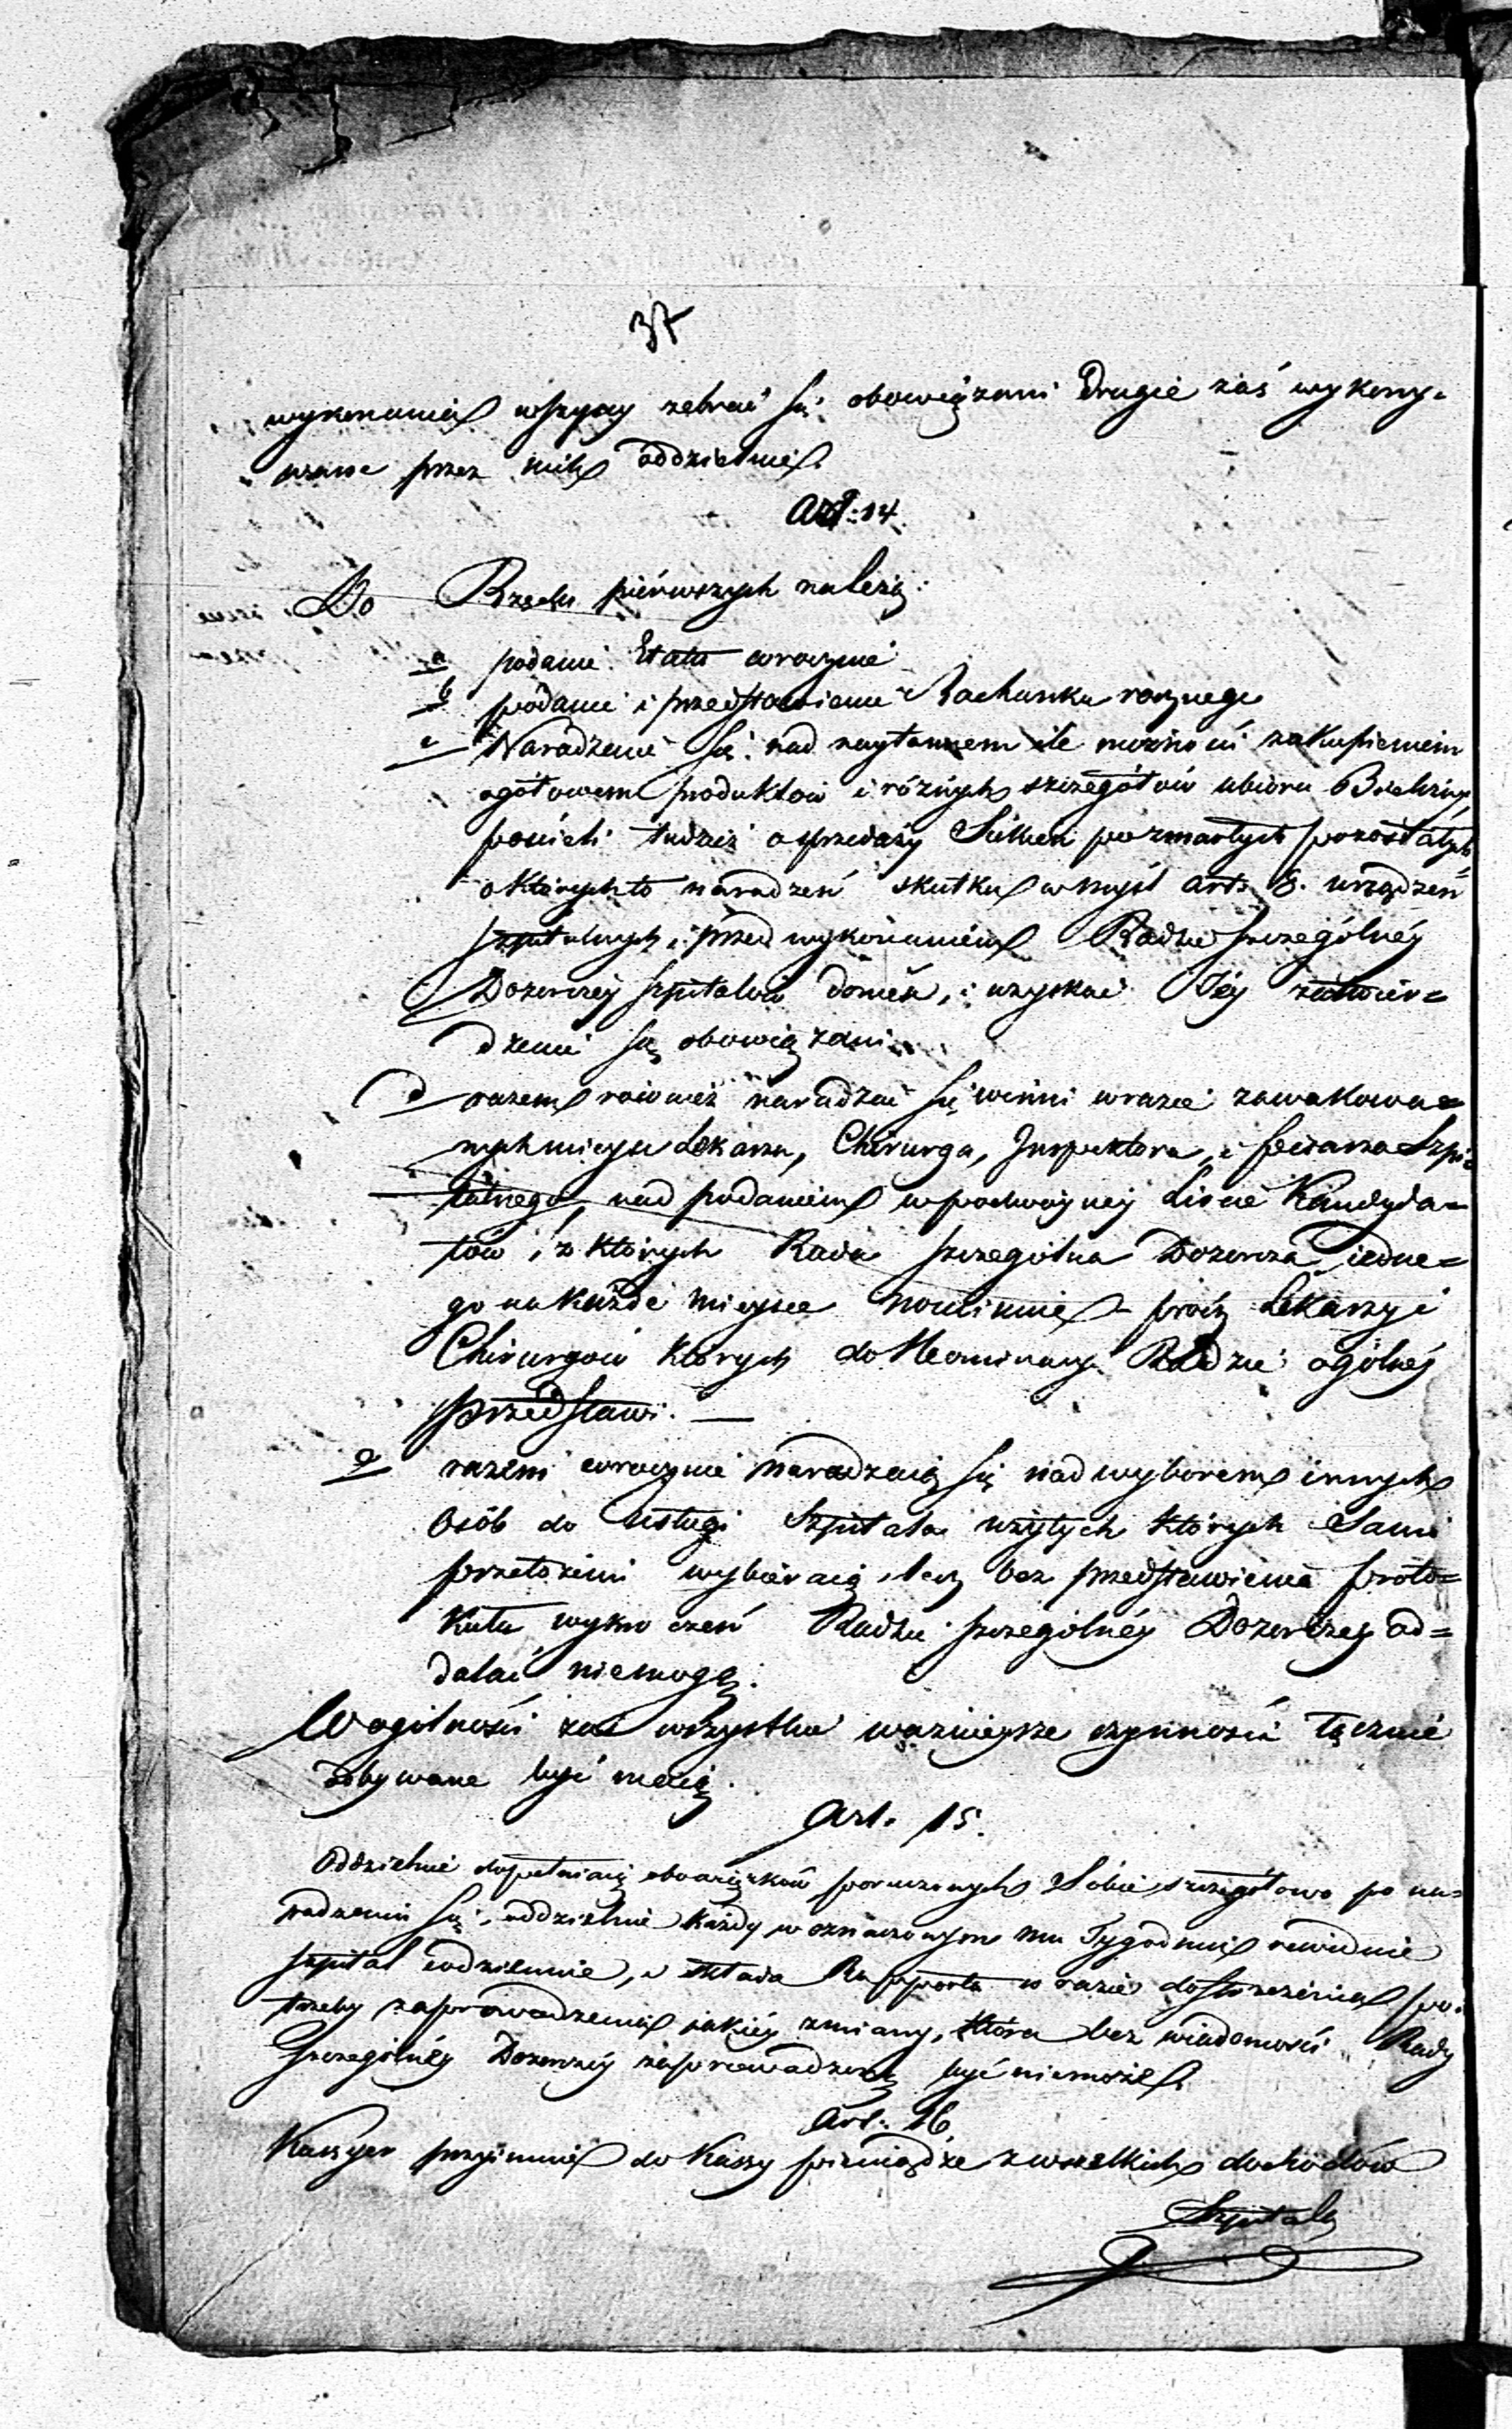 37
wykonania wszyscy zebrać się obowiązani Drugie zaś wykony-
wane przez nich oddzielnie.
Art: 14.
Do Rzędu piérwszych należą:
a podanie Etatu corocznie
b podanie i przedstawienie Rachunku rocznego
c Naradzenie się nad naytańszem ile możności zakupieniem
ogółowem produktów i różnych szczegółów ubioru Bielizny
pościeli tudzież o sprzedaży Sukien po zmarłych pozostałych
o których to naradzeń skutku w myśl art: 8. urządzeń
szpitalnych i przed wykonaniem Radzie szczególnéy
Dozorczéy szpitalów donieść, i uzyskać Jéy zatwier=
dzenie są obowiązani.
d razem rownież naradzać się winni wrazie zawakowa=
nych mieysc Lekarza, Chirurga, Inspektora, i pisarza Szpi=
talnego, nad podaniem w podwóynéy Liscie Kandyda=
tów, z których Rada szczególna Dozorcza iedne=
go na każde mieysce nominuie prócz Lekarzy i
Chirurgów których do Nominacyi Radzie ogólnéj
przedstawi. —
e razem corocznie naradzaią się nad wyborem innych
Osób do usługi Szpitala użytych których Sami
przełożeni wybieraią, lecz bez przedstawienia proto=
kułu wykroczeń Radzie szczególnéy Dozorczey od=
dalać niemogą.
W ogólności zaś wszystkie ważnieysze czynności łącznie
odbywane być maią.
Art. 15.
Oddzielnie dopełniaią obowiązków poruczonych Sobie szczegółowo po na=
radzeniu się, oddzielnie każdy w oznaczonym mu Tygodniu rewiduie
szpital codziennie, i składa Rapporta w razie dostrzeżenia po=
trzeby zaprowadzenia jakiéy zmiany, która bez wiadomości Rady
Szczególnéy Dozorczéy zaprowadzoną być niemoże.
Art. 16.
Kassyer przyimuie do Kassy pieniądze z wszelkich dochodów
Szpitala